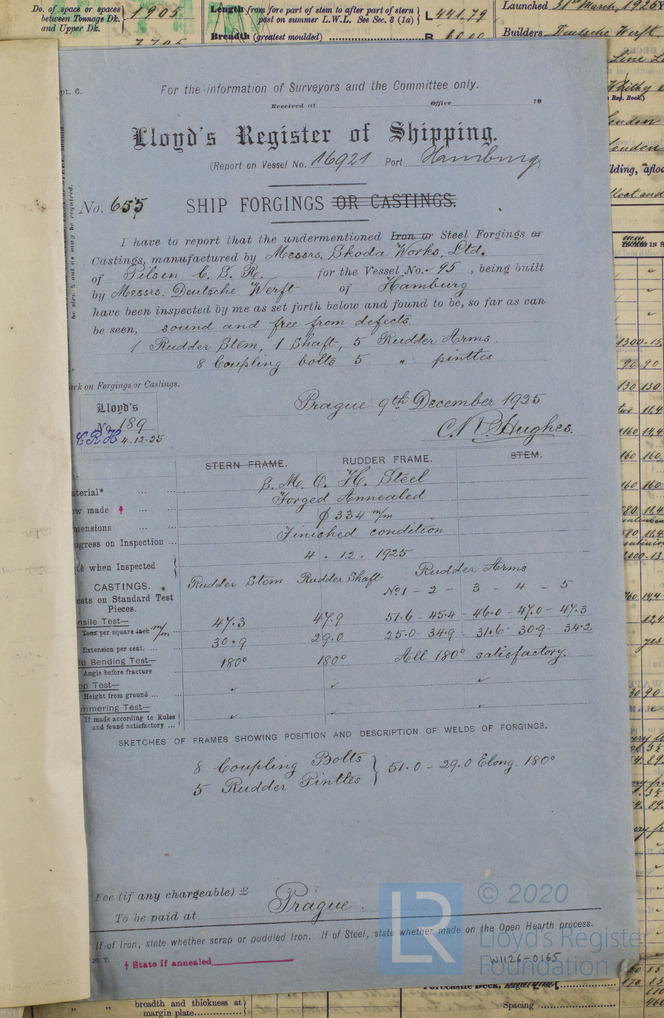 Do. of space or spaces between Tonnage Dk. and Upper Dk. 1905
Length from fore part of stem to after part of stern post on summer L.W.L. See Sec. 3 (1a) L 441.79
Breadth (greatest moulded) B 60.0
Launched 31st March, 1926
Builders Deutsche Werft
For the information of Surveyors and the Committee only.
Received at Office 19
Lloyd's Register of Shipping.
(Report on Vessel No. 16921 Port Hamburg
No. 655 SHIP FORGINGS OR CASTINGS.
I have to report that the undermentioned Iron or Steel Forgings or
Castings, manufactured by Messrs. Skoda Works, Ltd.
of Pilsen C.S.R. for the Vessel No. 95, being built
by Messrs. Deutsche Werft of Hamburg
have been inspected by me as set forth below and found to be, so far as can
be seen, sound and free from defects.
1 Rudder Stem, 1 Shaft, 5 Rudder Arms.
8 Coupling bolts 5 " pintles
ark on Forgings or Castings.
Lloyd's
No. 189
CRH 4.12.25
Prague 9th December 1925
C.R. Hughes.
STERN FRAME. RUDDER FRAME. STEM.
aterial* S. M. O. H. Steel
ow made † Forged Annealed
mensions ϕ 334 m/m
ogress on Inspection Finished condition
when Inspected 4. 12. 1925
CASTINGS. Rudder Stem Rudder Shaft Rudder Arms
ests on Standard Test Pieces. No 1 - 2 - 3 - 4 - 5
nsile Test— 47.3 47.9 51.6 - 45.4 - 46.0 - 47.0 - 47.3
Tons per square inch m/m
Extension per cent. 30.9 29.0 25.0 34.9 31.6 30.9 34.2
d Bending Test— 180° 180° All 180° satisfactory.
Angle before fracture
op Test—
Height from ground
mmering Test—
If made according to Rules and found satisfactory
SKETCHES OF FRAMES SHOWING POSITION AND DESCRIPTION OF WELDS OF FORGINGS.
8 Coupling Bolts
5 Rudder Pintles } 51.0 - 29.0 Elong. 180°
Fee (if any chargeable) £
To be paid at Prague.
If of Iron, state whether scrap or puddled Iron. If of Steel, state whether made on the Open Hearth process.
† State if annealed
LR © 2020
Lloyd's Register
Foundation
W1126-0165
breadth and thickness at margin plate
Spacing